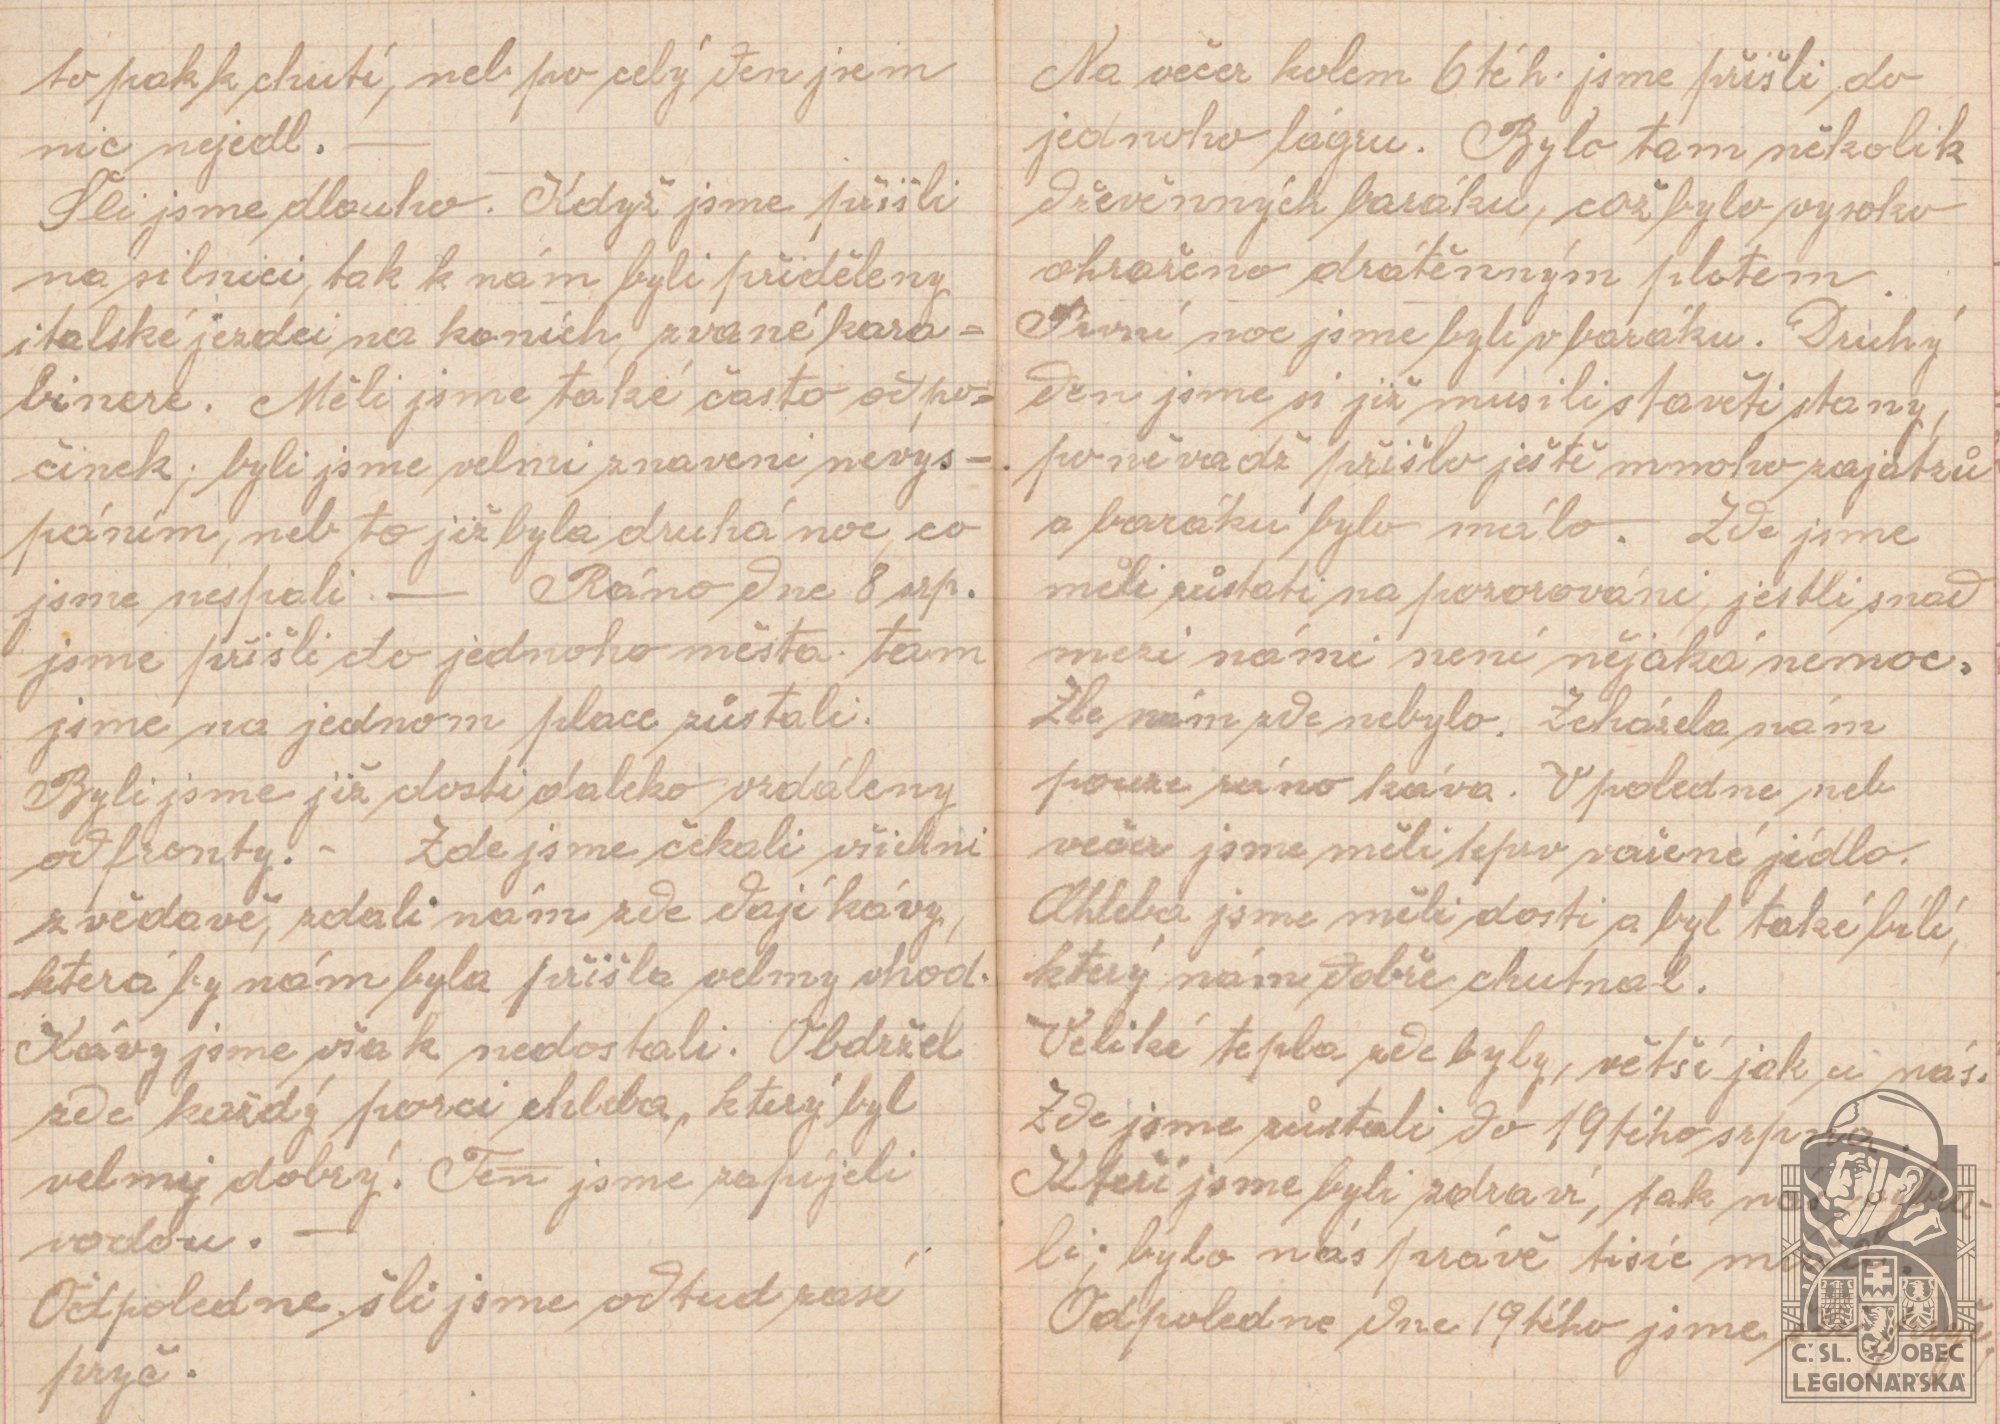 to pak k chuti, neb po celý den jsem
nic nejedl. —
Šli jsme dlouho. Když jsme přišli
na silnici, tak k nám byli přiděleny
italské jezdci na koních, zvané kara=
binere. Měli jsme také často odpo=
činek; byli jsme velmi znaveni nevys-
páním, neb to již byla druhá noc, co
jsme nespali. — Ráno dne 8 srp.
jsme přišli do jednoho města. tam
jsme na jednom place zůstali.
Byli jsme již dosti daleko vzdáleny
od fronty. - Zde jsme čekali všichni
zvědavě, zdali nám zde dají kávy,
která by nám byla přišla velmy vhod.
Kávy jsme však nedostali. Obdržel
zde každý porci chleba, který byl
velmy dobrý. Ten jsme zapíjeli
vodou. —
Odpoledne šli jsme odtud zase
pryč.
Na večer kolem 6 té h. jsme přišli do
jednoho lágru. Bylo tam několik
dřevěnných baráku, což bylo vysoko
ohraženo drátěnným plotem.
První noc jsme byli v baráku. Druhý
den jsme si již musili stavěti stany,
poněvadž přišlo ještě mnoho zajatzů
a baráku bylo málo. Zde jsme
měli zůstati na pozorováni, jestli snad
mezi námi není nějáká nemoc.
Zle nám zde nebylo. Zcházela nám
pouze ráno káva. V poledne neb
večer jsme měli vařené jídlo.
Chleba jsme měli dosti a byl také bílí,
který nám dobře chutnal.
Veliké tepla zde byly, větší jak u nás.
Zde jsme zůstali do 19tého srpna.
Kteří jsme byli zdraví, tak nás vybra-
li; bylo nás právě tisíc
Odpoledne dne 19tého jsme
Č. SL. OBEC
LEGIONÁŘSKÁ